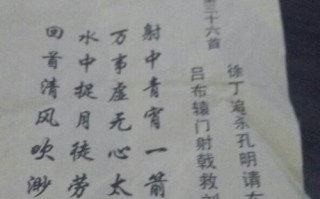 三十六首
徐丁追杀孔明请
吕布辕门射戟救
射中青宵一箭
万事虚无心太
水中捉月徒劳
回首清风吹渺